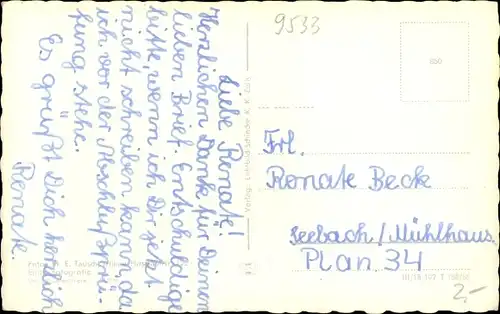 Liebe Renate!
Herzlichen Dank für Deinen
lieben Brief. Entschuldige
bitte, wenn ich Dir jetzt
nicht schreiben kann, da
ich vor der Abschlußprü-
fung stehe.
Es grüßt Dich herzlich
Renate.
9533
Frl.
Renate Beck
Seebach/Mühlhaus.
Plan 34
2,-